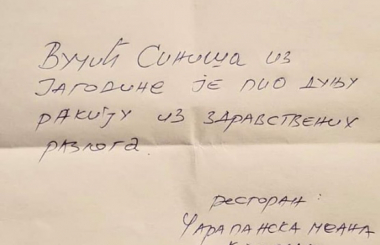 Вучић Синиша из
Јагодине је пио дуњу
ракију из здравствених
разлога.
ресторан:
Чарапанска меана